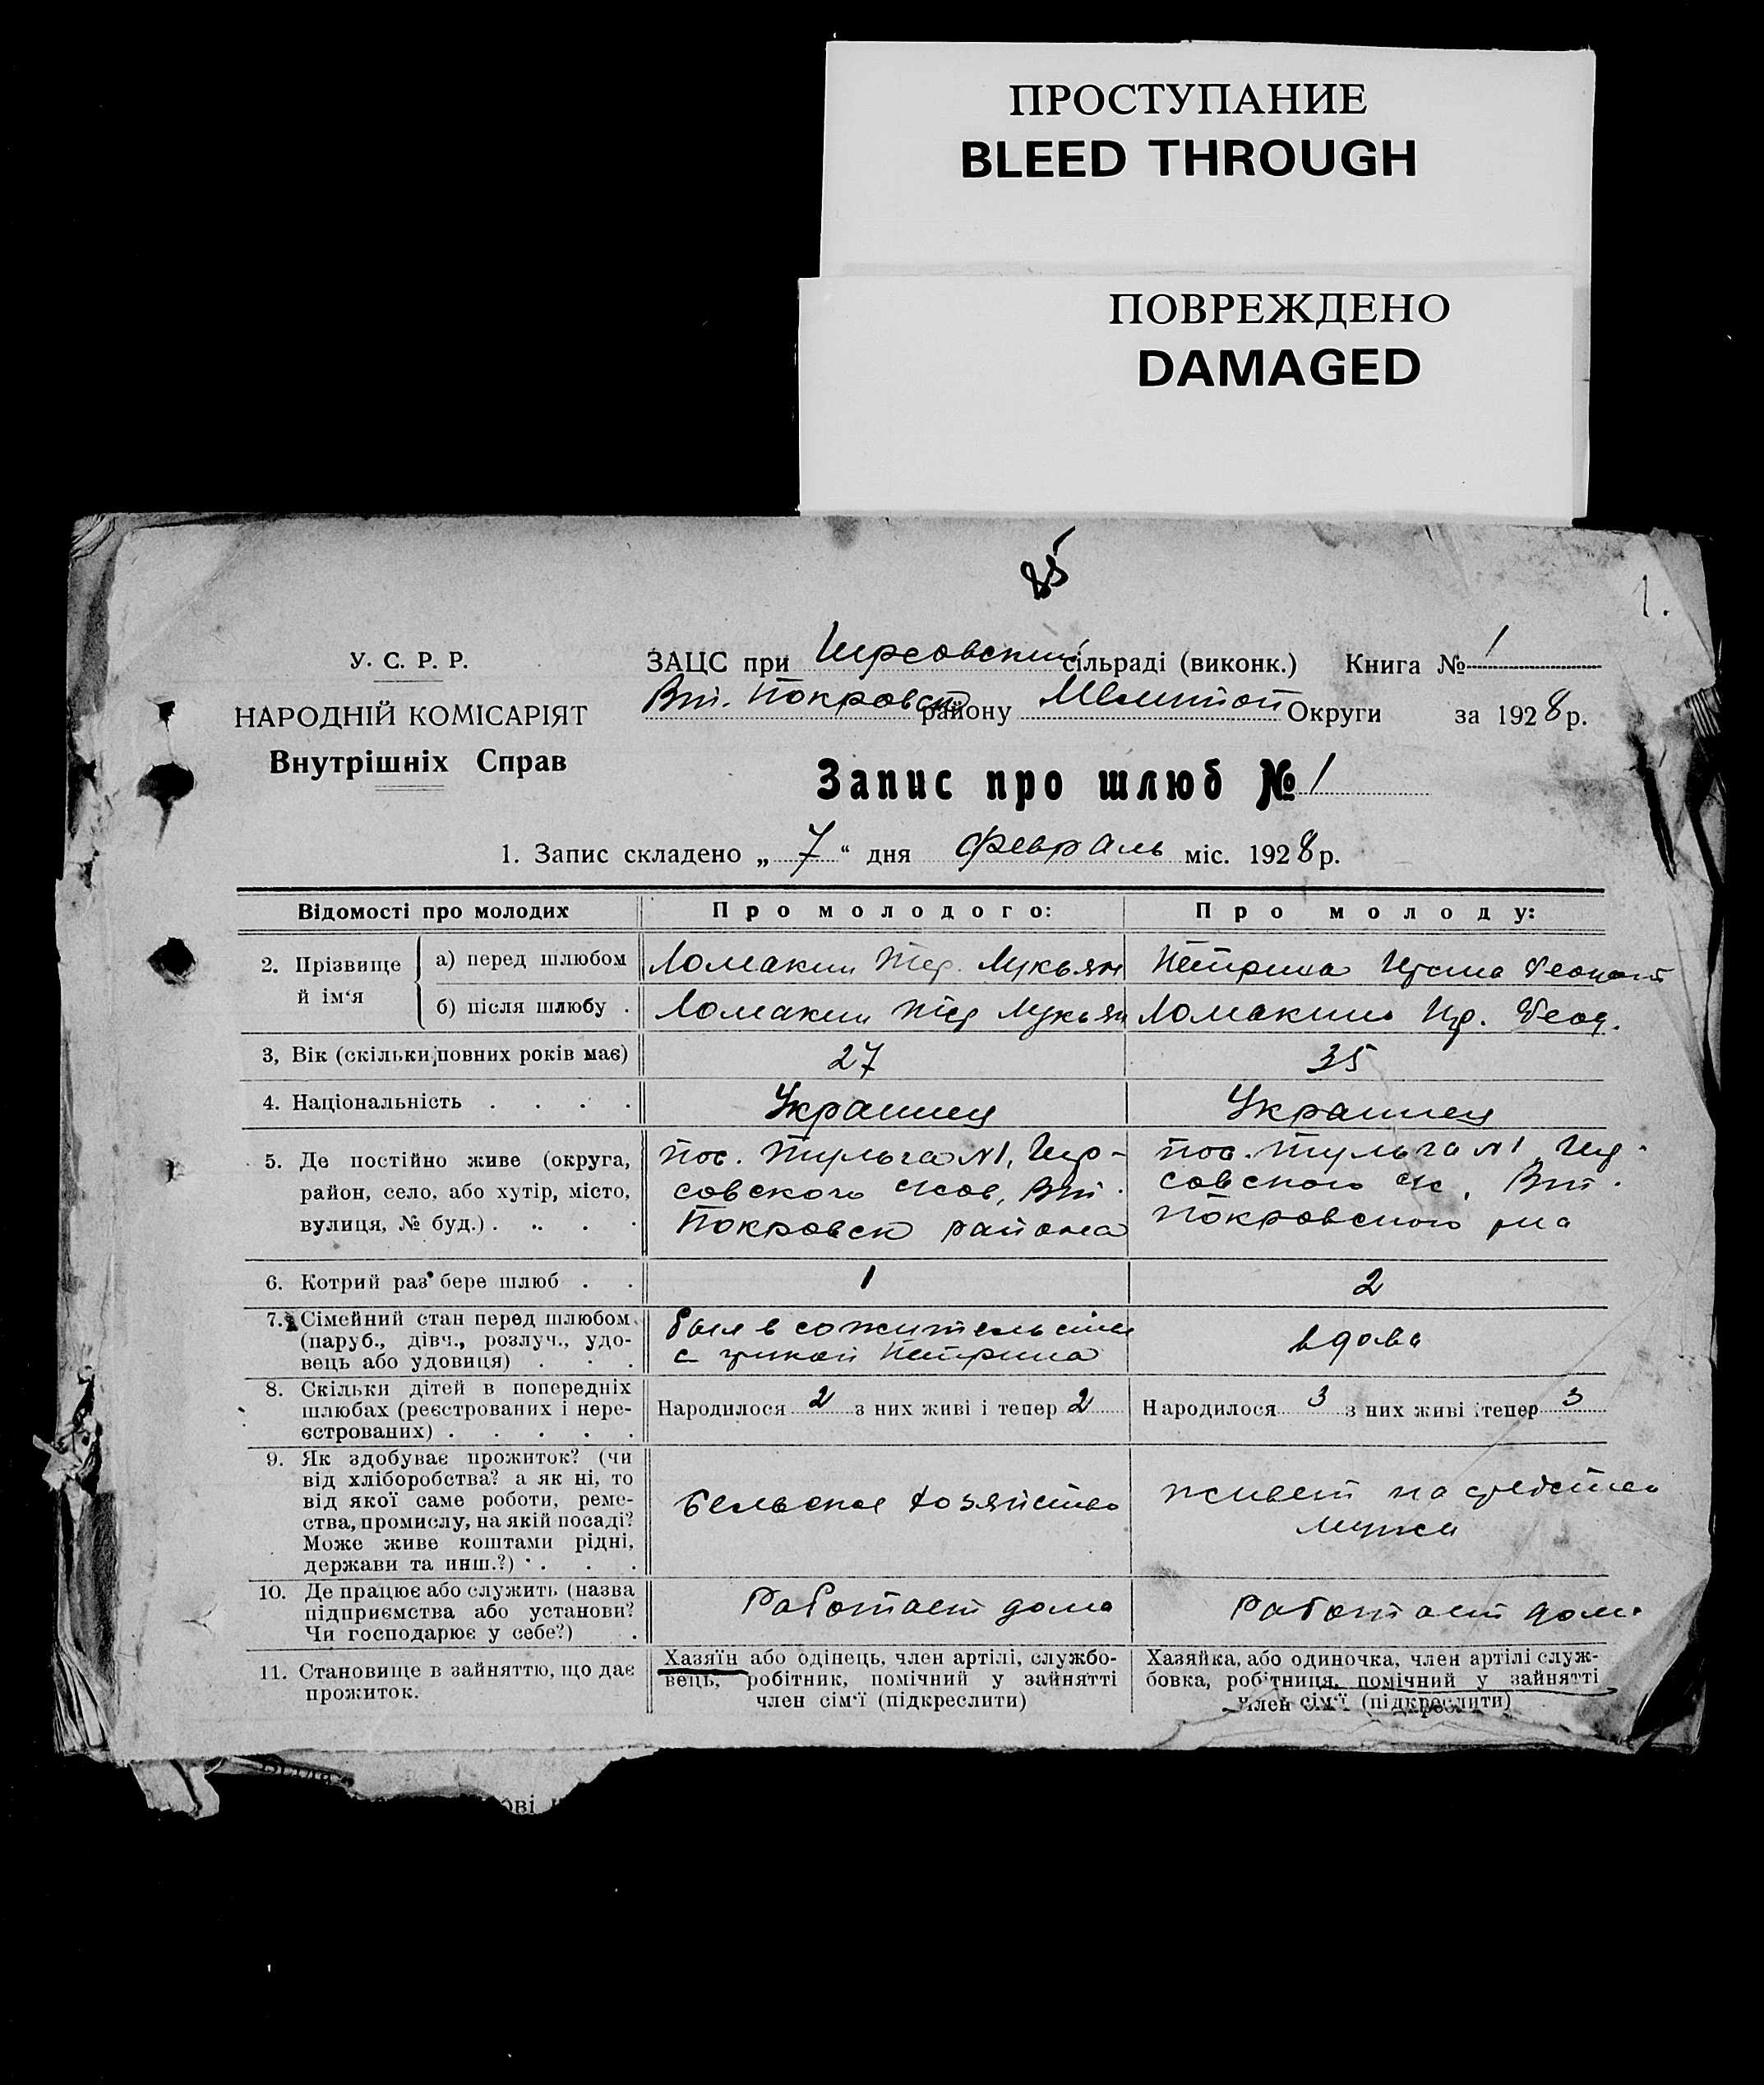 ПРОСТУПАНИЕ
BLEED THROUGH
ПОВРЕЖДЕНО
DAMAGED
85
1.
У. С. Р. Р.
НАРОДНІЙ КОМІСАРІЯТ
Внутрішніх Справ
ЗАЦС при сільраді (виконк.) Книга № 1
Вт. Покровск району Мелитоп Округи за 1928 р.
Запис про шлюб № 1
1. Запис складено „ 7 “ дня февраль міс. 1928 р.
Відомості про молодих
Про молодого:
Про молоду:
2. Прізвище й ім‘я
а) перед шлюбом
Ломакин Мукьян
Петрина
б) після шлюбу .
Ломакин Мукьян
Ломакина Ир. Феод.
3, Вік (скільки повних років має)
27
35
4. Національність . . . .
Украинец
Украинец
5. Де постійно живе (округа,
район, село, або хутір, місто,
вулиця, № буд.) . .. . .
пос. Тульга №1,
совского Вт.
Покровск района
пос. Тульга №1
совского с/с, Вт.
Покровского р-на
6. Котрий раз бере шлюб . .
1
2
7. Сімейний стан перед шлюбом
(паруб., дівч., розлуч., удо-
вець або удовиця) . . .
был в сожительстве
с Петрина
вдова
8. Скільки дітей в попередніх
шлюбах (реєстрованих і нере-
єстрованих) . . . . .
Народилося 2 з них живі і тепер 2
Народилося 3 з них живі і тепер 3
9. Як здобуває прожиток? (чи
від хліборобства? а як ні, то
від якої саме роботи, реме-
ства, промислу, на якій посаді?
Може живе коштами рідні,
держави та инш.?) . . .
Сельское хозяйство
живет на средства
мужа
10. Де працює або служить (назва
підприємства або установи?
Чи господарює у себе?) .
Работает дома
Работает дома
11. Становище в зайняттю, що дає
прожиток.
Хазяїн або одінець, член артілі, службо-
вець, робітник, помічний у зайнятті
член сім‘ї (підкреслити)
Хазяйка, або одиночка, член артілі служ-
бовка, робітниця, помічний у зайнятті
член сім‘ї (підкреслити)